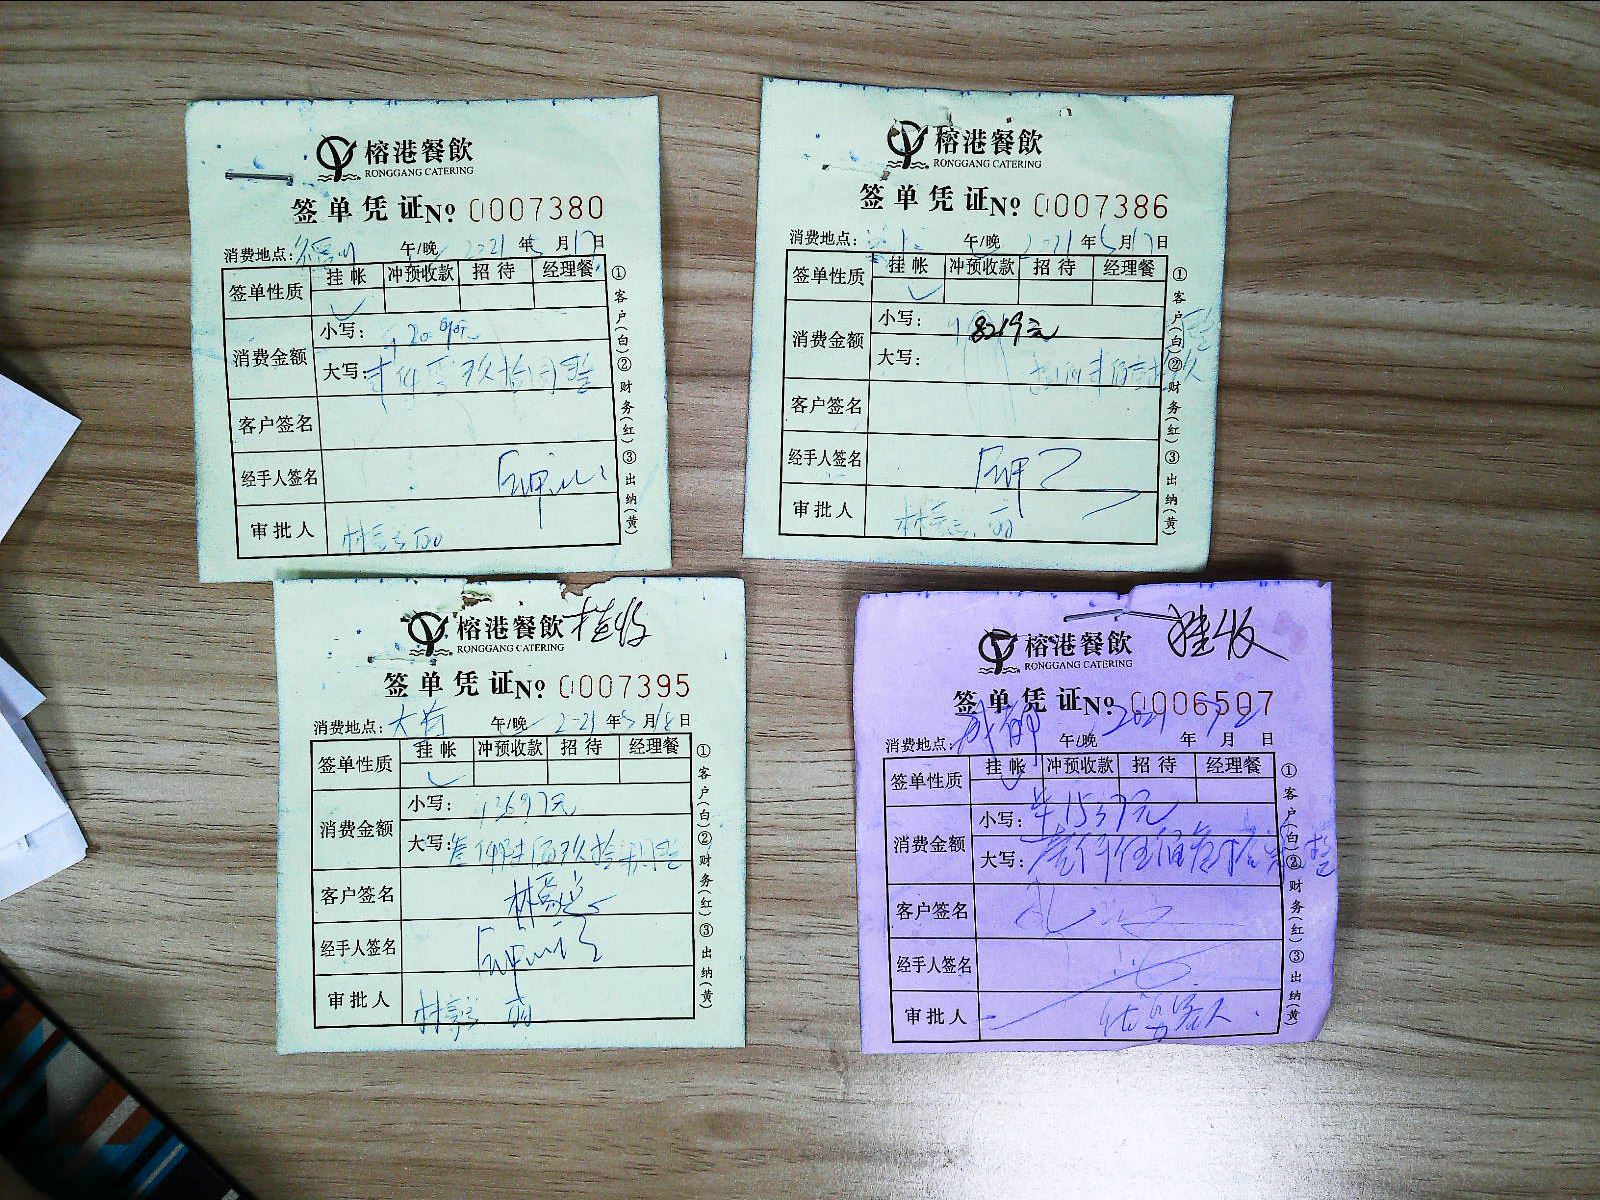 榕港餐飲
RONGGANG CATERING
签单凭证 No 0007380
消费地点: 午/晚 2021年5月17日
签单性质 挂帐 冲预收款 招待 经理餐
消费金额 小写:
大写: 贰仟零玖拾元整
客户签名
经手人签名
审批人
①客户(白)②财务(红)③出纳(黄)
榕港餐飲
RONGGANG CATERING
签单凭证 No 0007386
消费地点: 午/晚 2021年5月17日
签单性质 挂帐 冲预收款 招待 经理餐
消费金额 小写: 8219元
大写:
客户签名
经手人签名
审批人
①客户(白)②财务(红)③出纳(黄)
榕港餐飲
RONGGANG CATERING
签单凭证 No 0007395
消费地点: 午/晚 2021年5月18日
签单性质 挂帐 冲预收款 招待 经理餐
消费金额 小写: ¥3697元
大写: 叁仟陆佰玖拾柒元整
客户签名
经手人签名
审批人
①客户(白)②财务(红)③出纳(黄)
榕港餐飲 挂收
RONGGANG CATERING
签单凭证 No 0006507
消费地点: 成都 午/晚 2021年 月 日
签单性质 挂帐 冲预收款 招待 经理餐
消费金额 小写: 1537元
大写: 壹仟伍佰叁拾柒元整
客户签名
经手人签名
审批人
①客户(白)②财务(红)③出纳(黄)